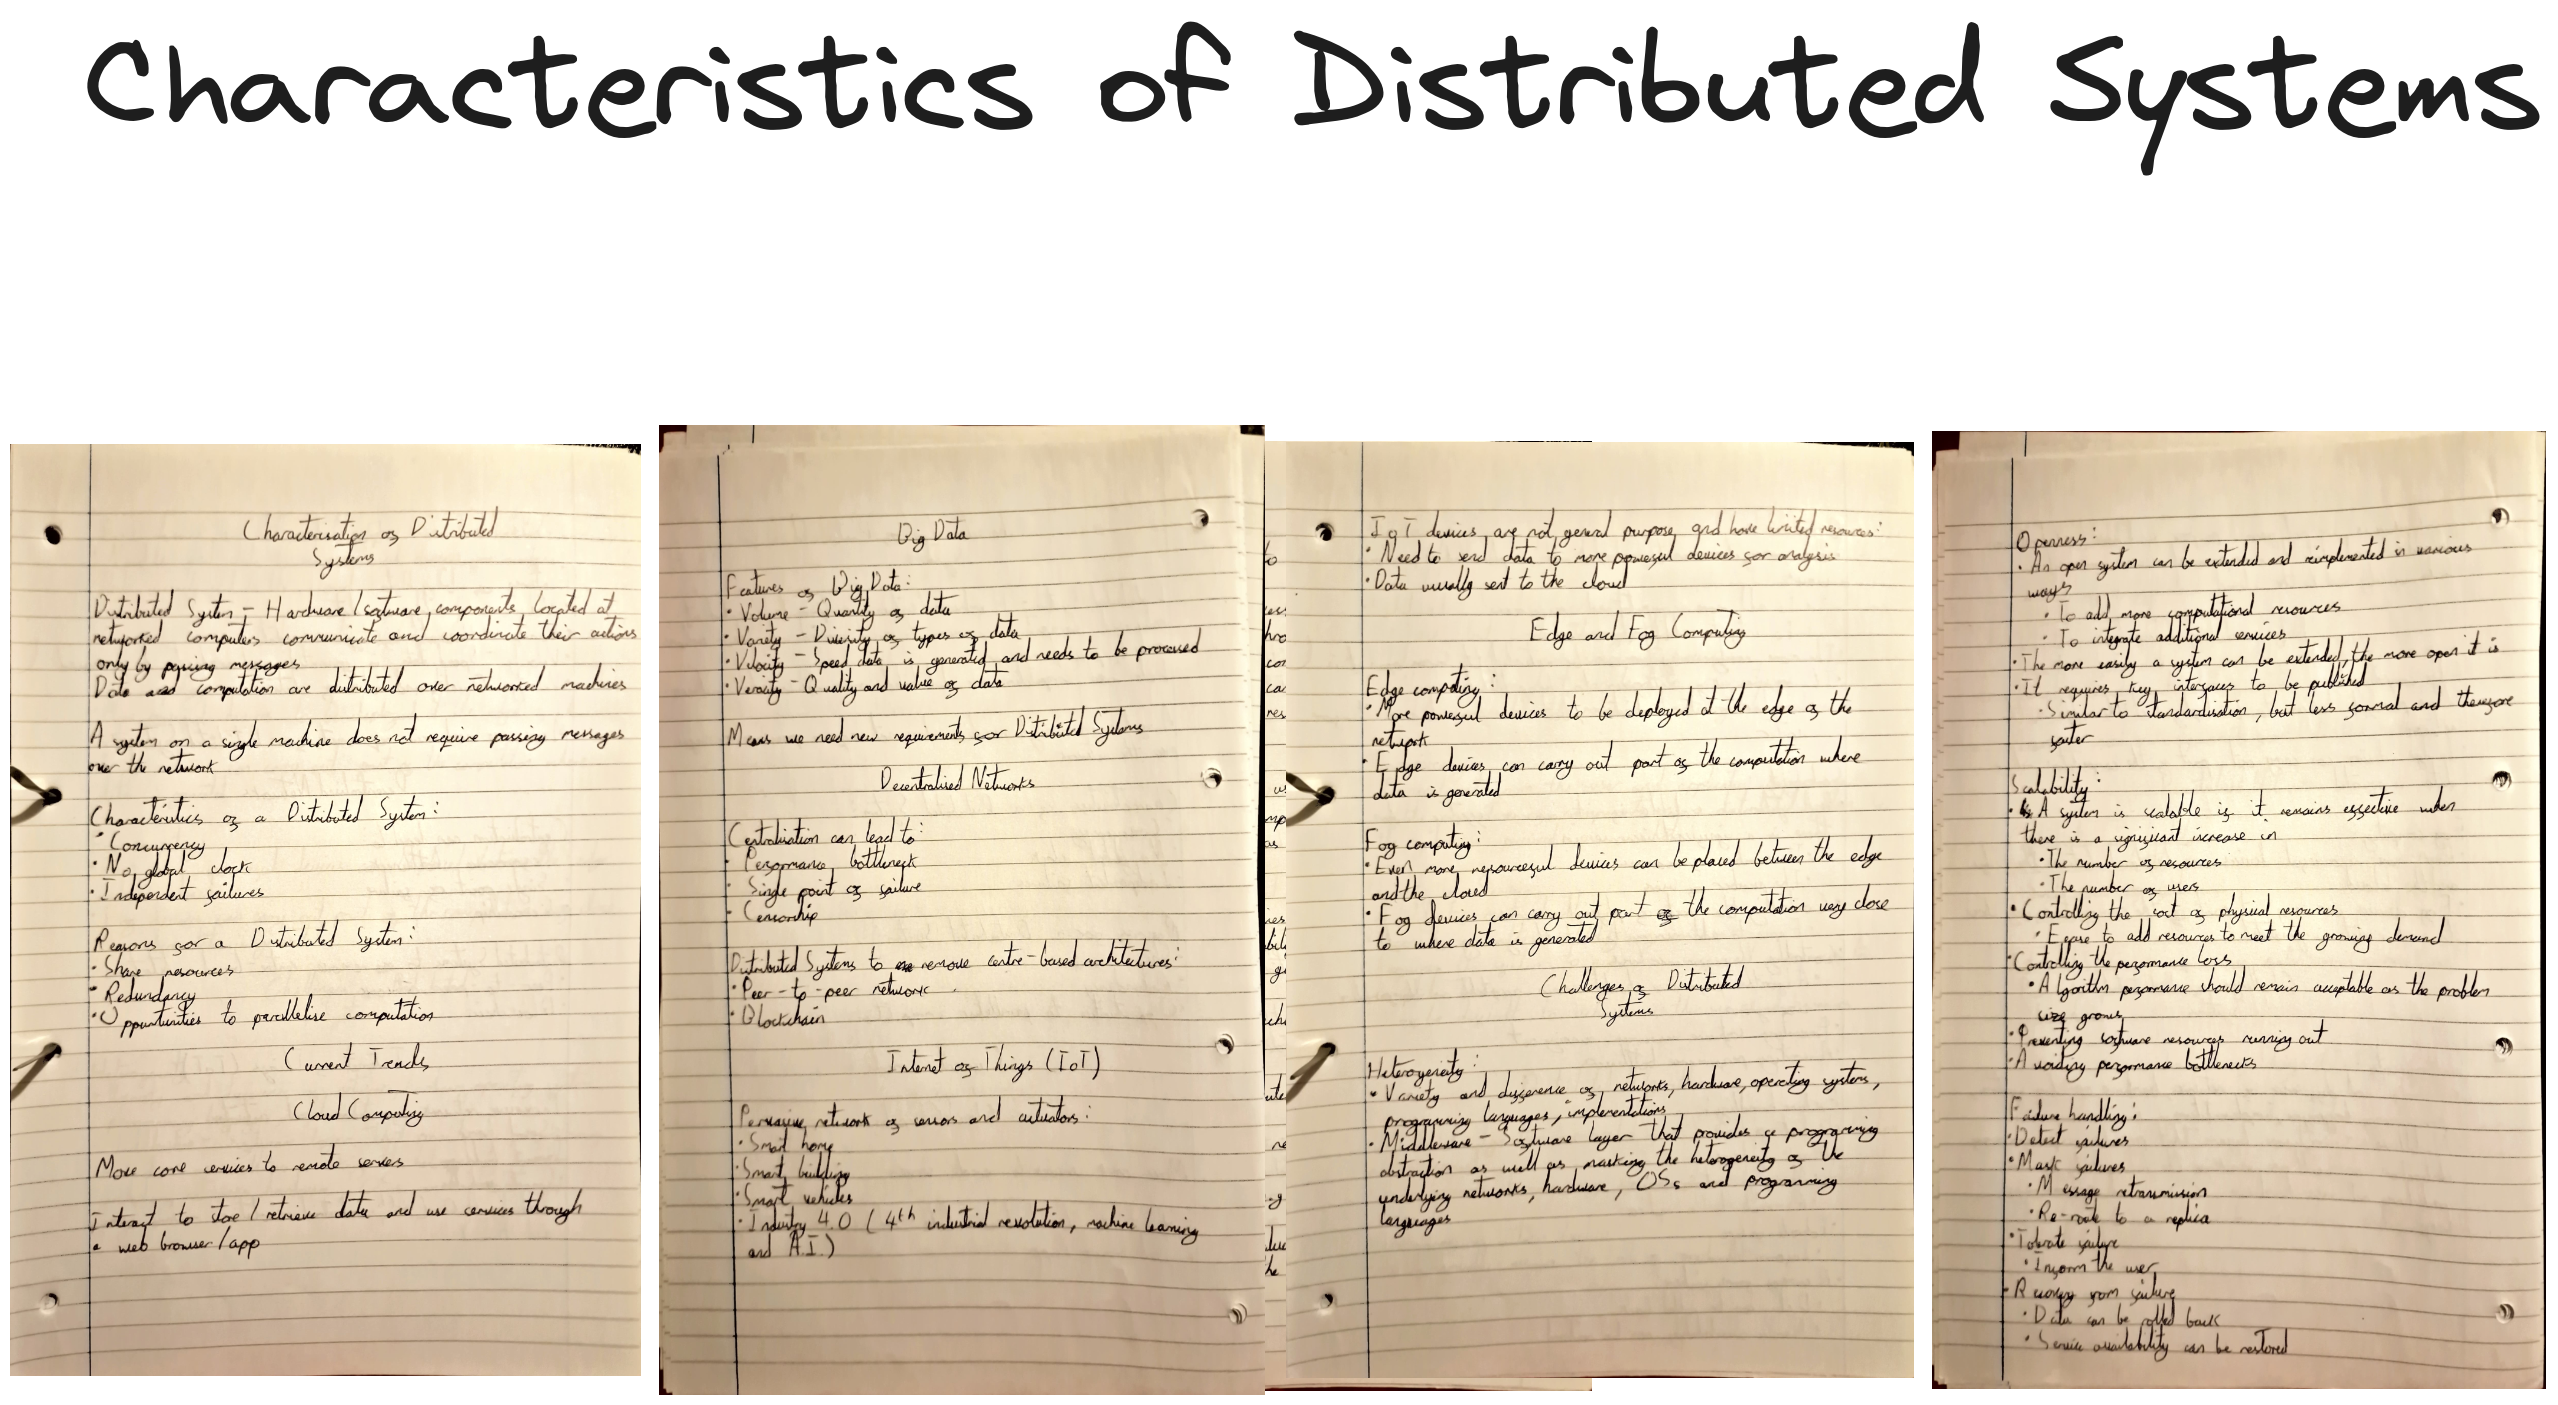 Characteristics of Distributed Systems
Characterisation of Distributed
Systems
Distributed System - Hardware/software components located at
networked computers communicate and coordinate their actions
only by passing messages
Data and computation are distributed over networked machines
A system on a single machine does not require passing messages
over the network
Characteristics of a Distributed System:
• Concurrency
• No global clock
• Independent failures
Reasons for a Distributed System:
• Share resources
• Redundancy
• Oppurtunities to parallelise computation
Current Trends
Cloud Computing
Move core services to remote servers
Interact to store/retrieve data and use services through
a web browser/app
Big Data
Features of Big Data:
• Volume - Quantity of data
• Variety - Diversity of types of data
• Velocity - Speed data is generated and needs to be processed
• Veracity - Quality and value of data
Means we need new requirements for Distributed Systems
Decentralised Networks
Centralisation can lead to:
• Performance bottleneck
• Single point of failure
• Censorship
Distributed Systems to remove centre-based architectures:
• Peer-to-peer network
• Blockchain
Internet of Things (IoT)
Pervasive network of sensors and actuators:
• Smart home
• Smart building
• Smart vehicles
• Industry 4.0 (4th industrial revolution, machine learning
and A.I.)
IoT devices are not general purpose and have limited resources:
• Need to send data to more powerful devices for analysis
• Data usually sent to the cloud
Edge and Fog Computing
Edge computing:
• More powerful devices to be deployed at the edge of the
network
• Edge devices can carry out part of the computation where
data is generated
Fog computing:
• Even more resourceful devices can be placed between the edge
and the cloud
• Fog devices can carry out part of the computation very close
to where data is generated
Challenges of Distributed
Systems
Heterogeneity:
• Variety and difference of networks, hardware, operating systems,
programming languages, implementations
• Middleware - Software layer that provides a programming
abstraction as well as masking the heterogeneity of the
underlying networks, hardware, OSs and programming
languages
Openness:
• An open system can be extended and reimplemented in various
ways
• To add more computational resources
• To integrate additional services
• The more easily a system can be extended, the more open it is
• It requires key interfaces to be published
• Similar to standardisation, but less formal and therefore
faster
Scalability:
• A system is scalable if it remains effective when
there is a significant increase in
• The number of resources
• The number of users
• Controlling the cost of physical resources
• Ease to add resources to meet the growing demand
• Controlling the performance loss
• Algorithm performance should remain acceptable as the problem
size grows
• Preventing software resources running out
• Avoiding performance bottlenecks
Failure handling:
• Detect failures
• Mask failures
• Message retransmission
• Re-route to a replica
• Tolerate failure
• Inform the user
• Recovery from failure
• Data can be rolled back
• Service availability can be restored